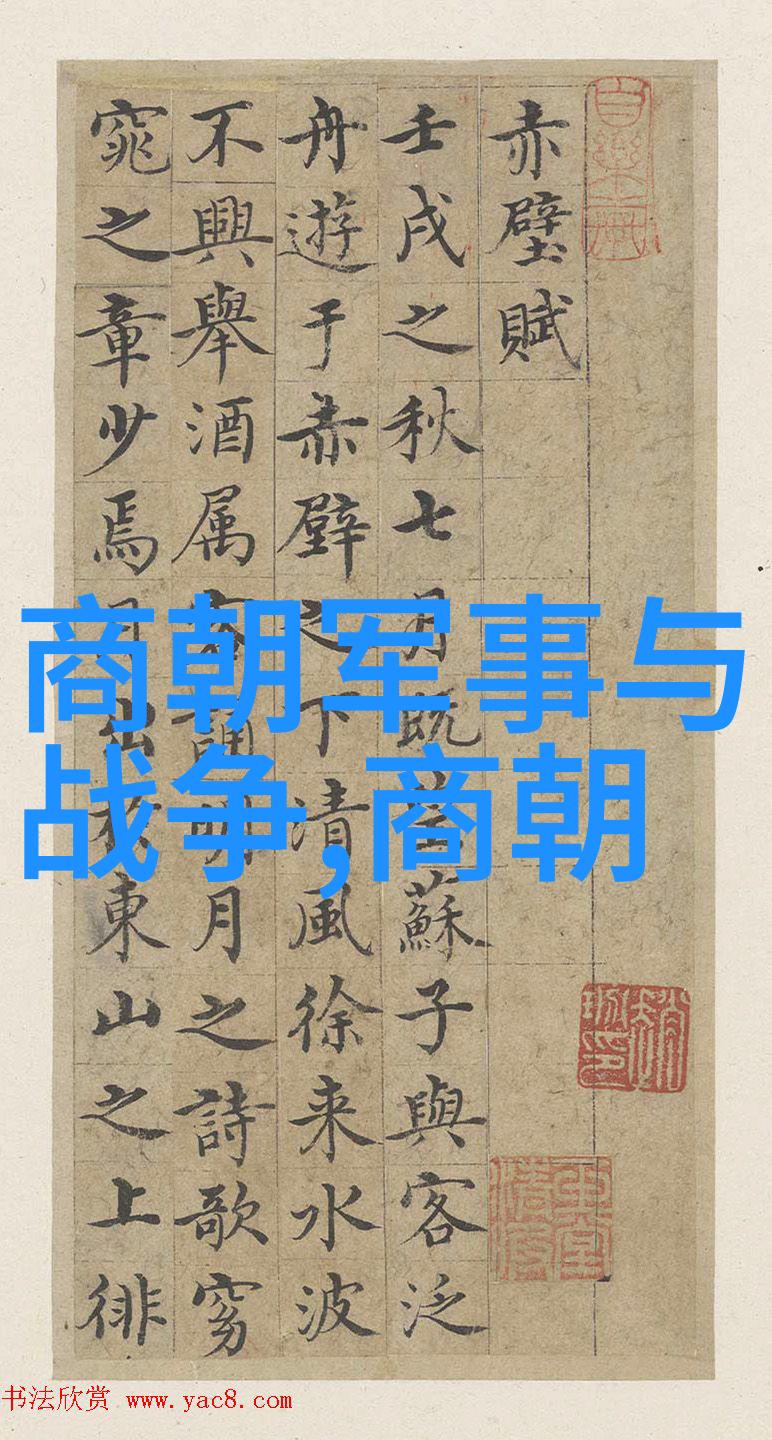 赤壁賦
壬戌之秋七月既望蘇子與客泛
舟遊于赤壁之下清風徐来水波
不興舉酒属客誦明月之詩歌窈
窕之章少焉月出於東山之上徘
商朝军事与
战争,商朝
书法欣赏 www.yac8.com